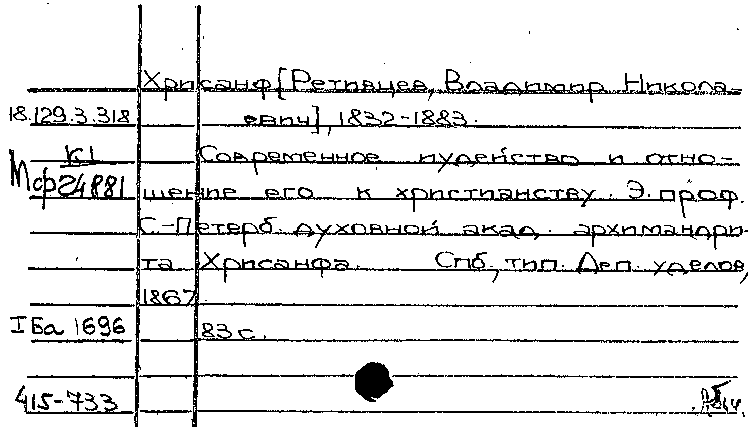 Хрисанф [Ретивцев, Владимир Никола-
18.129.3.318 евич], 1832-1883.
К1 Современное иудейство и отно-
Мф 24881 шение его к христианству. Э. проф.
С.-Петерб. духовной акад. архимандри-
та Хрисанфа. Спб, тип. Деп. уделов,
1867
I Ба 1696 83 с.
415-733